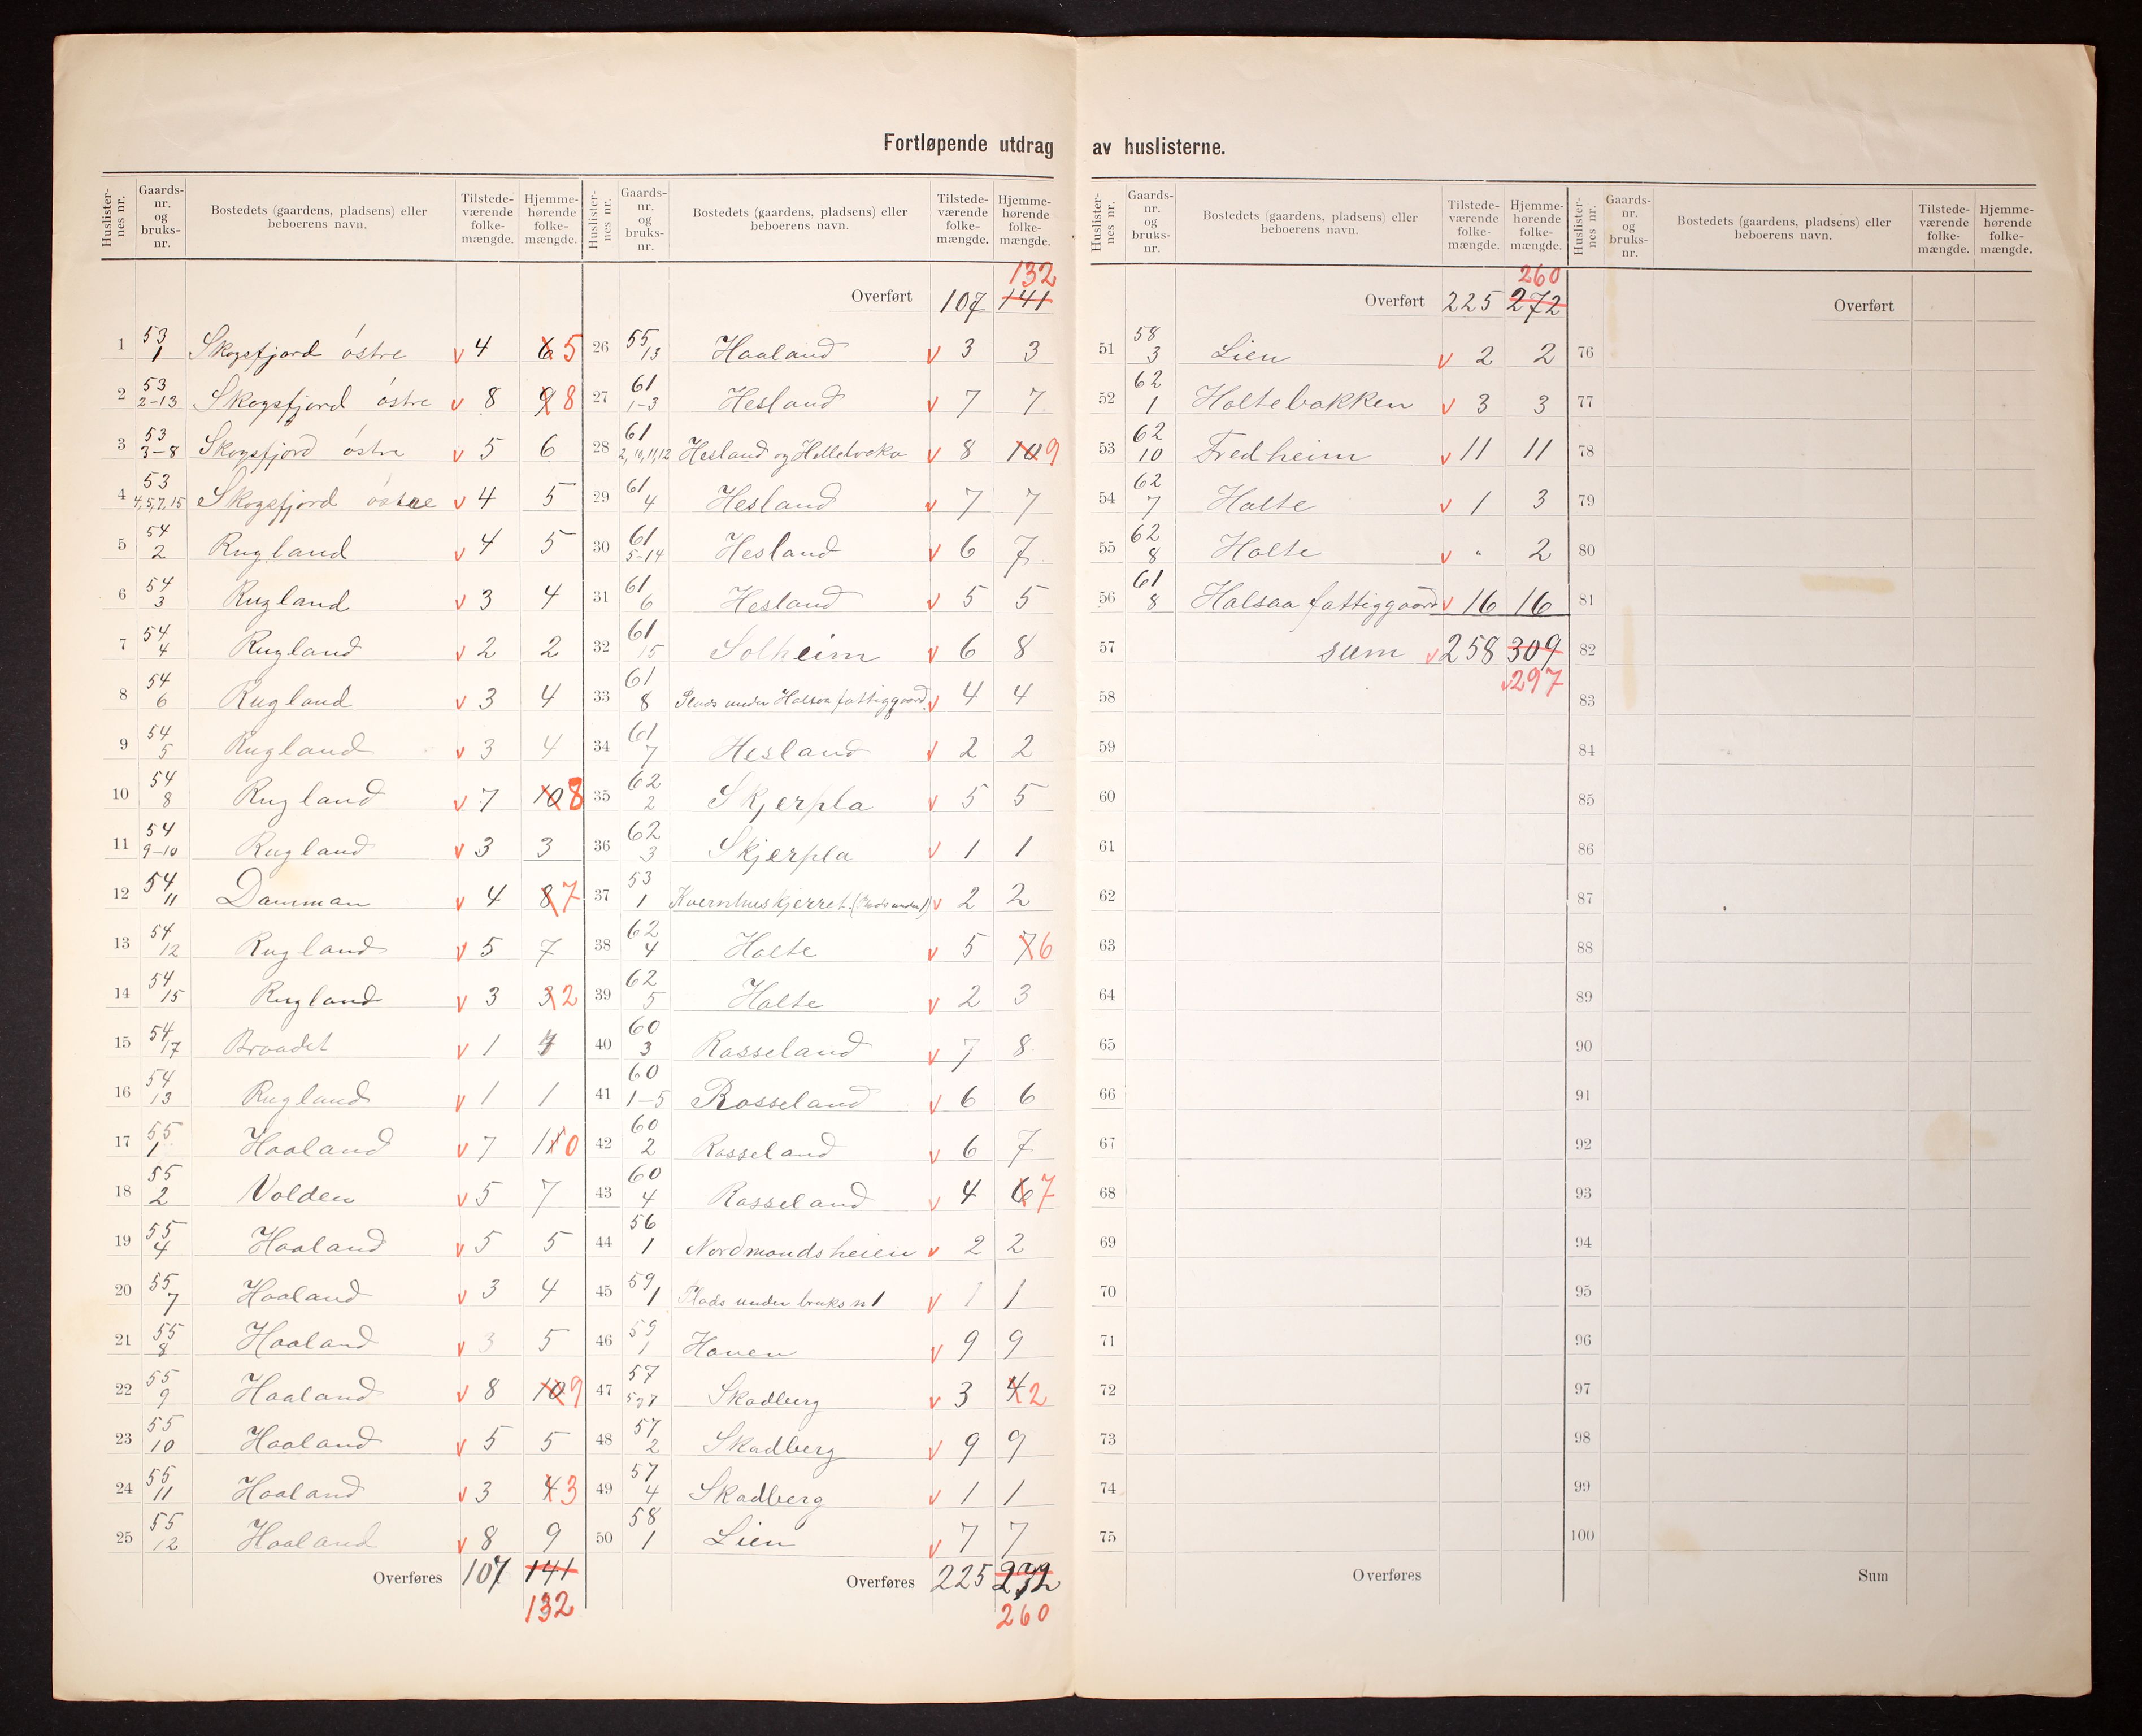 Fortløpende utdrag av huslisterne.
Huslister-nes nr. | Gaards-nr. og bruks-nr. | Bostedets (gaardens, pladsens) eller beboerens navn. | Tilstede-værende folke-mængde. | Hjemme-hørende folke-mængde.
1 | 53 1 | Skogsfjord østre | v 4 | 6 5
2 | 53 2-13 | Skogsfjord østre | v 8 | 9 8
3 | 53 3-8 | Skogsfjord østre | v 5 | 6
4 | 53 4,5,7,15 | Skogsfjord østre | v 4 | 5
5 | 54 2 | Rugland | v 4 | 5
6 | 54 3 | Rugland | v 3 | 4
7 | 54 4 | Rugland | v 2 | 2
8 | 54 6 | Rugland | v 3 | 4
9 | 54 5 | Rugland | v 3 | 4
10 | 54 8 | Rugland | v 7 | 10 8
11 | 54 9-10 | Rugland | v 3 | 3
12 | 54 11 | Damman | v 4 | 8 7
13 | 54 12 | Rugland | v 5 | 7
14 | 54 15 | Rugland | v 3 | 3 2
15 | 54 17 | Braadet | v 1 | 4
16 | 54 13 | Rugland | v 1 | 1
17 | 55 1 | Haaland | v 7 | 11 0
18 | 55 2 | Volden | v 5 | 7
19 | 55 4 | Haaland | v 5 | 5
20 | 55 7 | Haaland | v 3 | 4
21 | 55 8 | Haaland | v 3 | 5
22 | 55 9 | Haaland | v 8 | 10 9
23 | 55 10 | Haaland | v 5 | 5
24 | 55 11 | Haaland | v 3 | 4 3
25 | 55 12 | Haaland | v 8 | 9
Overføres 107 141
132
Huslister-nes nr. | Gaards-nr. og bruks-nr. | Bostedets (gaardens, pladsens) eller beboerens navn. | Tilstede-værende folke-mængde. | Hjemme-hørende folke-mængde.
132
Overført 107 141
26 | 55 13 | Haaland | v 3 | 3
27 | 61 1-3 | Hesland | v 7 | 7
28 | 61 2,10,11,12 | Hesland og | v 8 | 10 9
29 | 61 4 | Hesland | v 7 | 7
30 | 61 5-14 | Hesland | v 6 | 7
31 | 61 6 | Hesland | v 5 | 5
32 | 61 15 | Solheim | v 6 | 8
33 | 61 8 | Plads under Halsaa fattiggaard | v 4 | 4
34 | 61 7 | Hesland | v 2 | 2
35 | 62 2 | Skjerpla | v 5 | 5
36 | 62 3 | Skjerpla | v 1 | 1
37 | 53 1 | Kvernhuskjerret (Plads under 1) | v 2 | 2
38 | 62 4 | Holte | v 5 | 7 6
39 | 62 5 | Holte | v 2 | 3
40 | 60 3 | Rosseland | v 7 | 8
41 | 60 1-5 | Rosseland | v 6 | 6
42 | 60 2 | Rosseland | v 6 | 7
43 | 60 4 | Rosseland | v 4 | 6 7
44 | 56 1 | Nordmandsheien | v 2 | 2
45 | 59 1 | Plads under bruks n 1 | v 1 | 1
46 | 59 1 | Haven | v 9 | 9
47 | 57 | Skadberg | v 3 | 4 2
48 | 57 2 | Skadberg | v 9 | 9
49 | 57 4 | Skadberg | v 1 | 1
50 | 58 1 | Lien | v 7 | 7
Overføres 225 272
260
Huslister-nes nr. | Gaards-nr. og bruks-nr. | Bostedets (gaardens, pladsens) eller beboerens navn. | Tilstede-værende folke-mængde. | Hjemme-hørende folke-mængde.
260
Overført 225 272
51 | 58 3 | Lien | v 2 | 2
52 | 62 1 | Holtebakken | v 3 | 3
53 | 62 10 | Fredheim | v 11 | 11
54 | 62 7 | Holte | v 1 | 3
55 | 62 8 | Holte | v " | 2
56 | 61 8 | Halsaa fattiggaard | v 16 | 16
57 | sum | v 258 | 309
58 | v 297
59
60
61
62
63
64
65
66
67
68
69
70
71
72
73
74
75
Overføres
Huslister-nes nr. | Gaards-nr. og bruks-nr. | Bostedets (gaardens, pladsens) eller beboerens navn. | Tilstede-værende folke-mængde. | Hjemme-hørende folke-mængde.
Overført
76
77
78
79
80
81
82
83
84
85
86
87
88
89
90
91
92
93
94
95
96
97
98
99
100
Sum